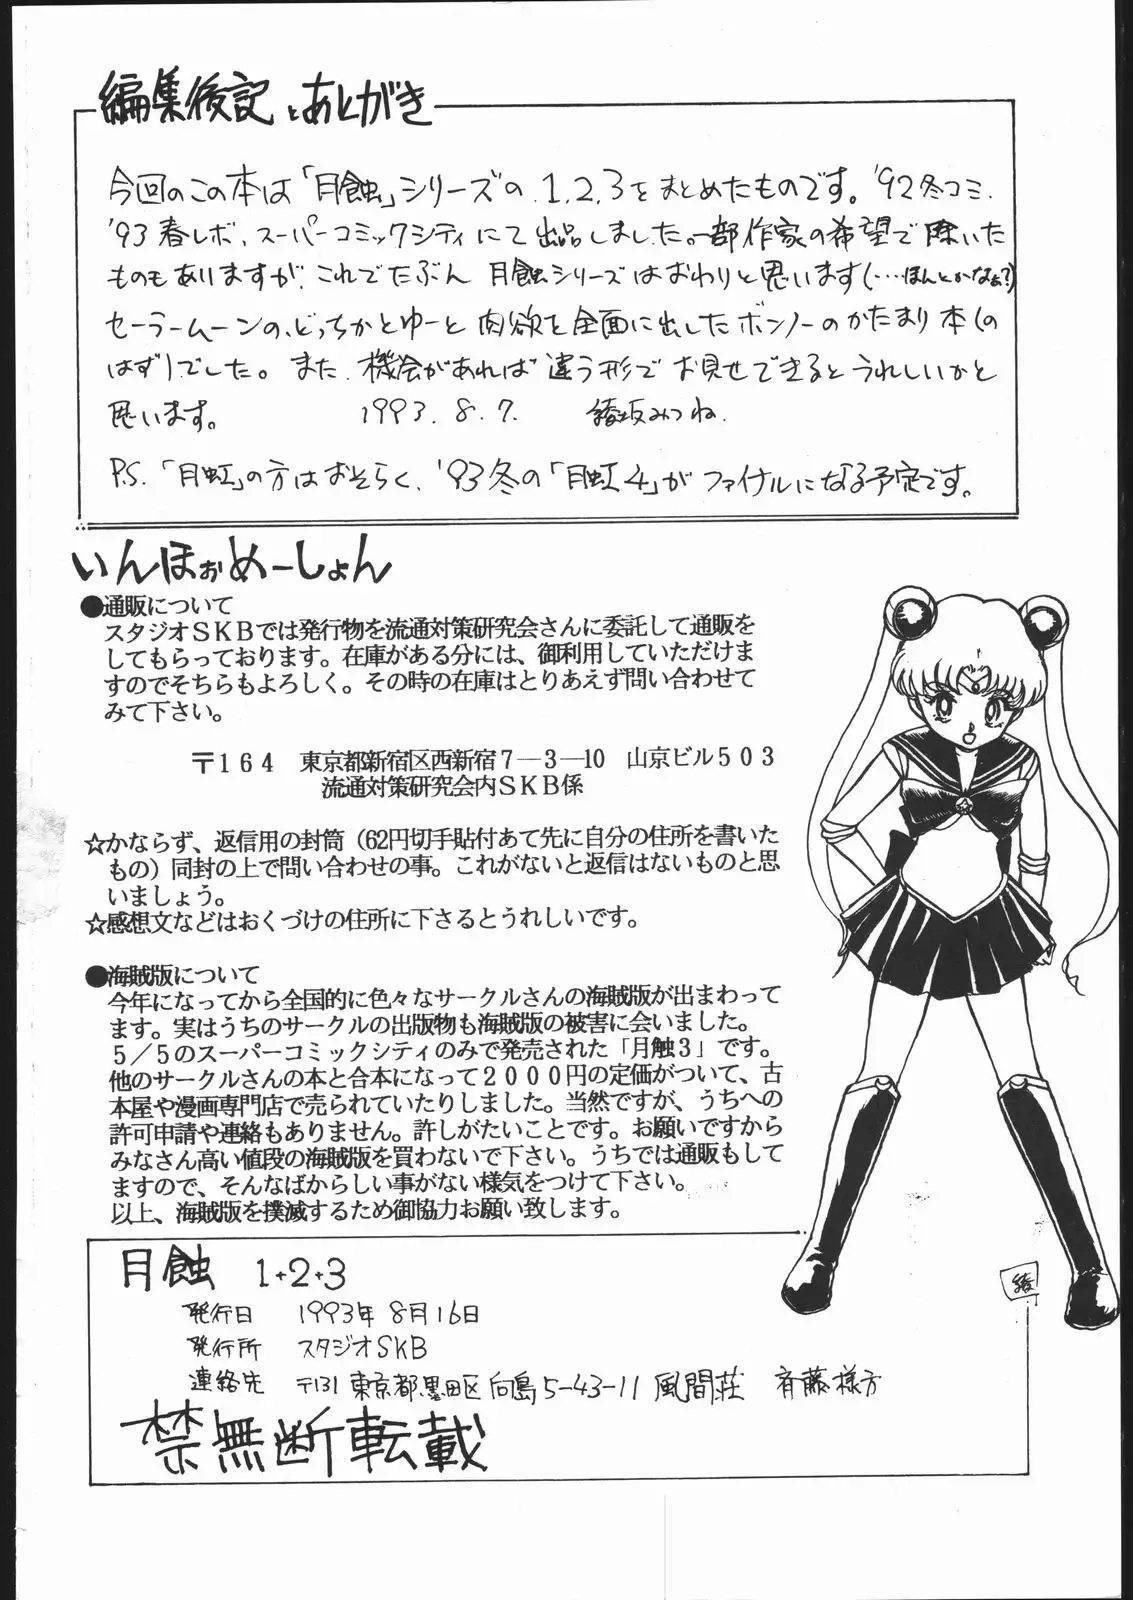 編集後記とあとがき
今回のこの本は「月蝕」シリーズの1,2,3をまとめたものです。'92冬コミ、
'93春レボ、スーパーコミックシティにて出品しました。一部作家の希望で除いた
ものもありますが、これでたぶん 月蝕シリーズはおわりと思います(…ほんとかなぁ?)
セーラームーンの、どっちかとゆーと肉欲を全面に出したボンノーのかたまり本(の
はず)でした。また、機会があれば違う形でお見せできるとうれしいかと
思います。 1993.8.7. 綾坂みつね.
P.S.「月虹」の方はおそらく、'93冬の「月虹4」がファイナルになる予定です。
いんほぉめーしょん
●通販について
スタジオSKBでは発行物を流通対策研究会さんに委託して通販を
してもらっております。在庫がある分には、御利用していただけま
すのでそちらもよろしく。その時の在庫はとりあえず問い合わせて
みて下さい。
〒164 東京都新宿区西新宿7-3-10 山京ビル503
流通対策研究会内SKB係
☆かならず、返信用の封筒(62円切手貼付あて先に自分の住所を書いた
もの)同封の上で問い合わせの事。これがないと返信はないものと思
いましょう。
☆感想文などはおくづけの住所に下さるとうれしいです。
●海賊版について
今年になってから全国的に色々なサークルさんの海賊版が出まわって
ます。実はうちのサークルの出版物も海賊版の被害に会いました。
5/5のスーパーコミックシティのみで発売された「月触3」です。
他のサークルさんの本と合本になって2000円の定価がついて、古
本屋や漫画専門店で売られていたりしました。当然ですが、うちへの
許可申請や連絡もありません。許しがたいことです。お願いですから
みなさん高い値段の海賊版を買わないで下さい。うちでは通販もして
ますので、そんなばからしい事がない様気をつけて下さい。
以上、海賊版を撲滅するため御協力お願い致します。
綾
月蝕 1+2+3
発行日 1993年8月16日
発行所 スタジオSKB
連絡先 〒131 東京都墨田区向島5-43-11 風間荘 斉藤様方
禁無断転載